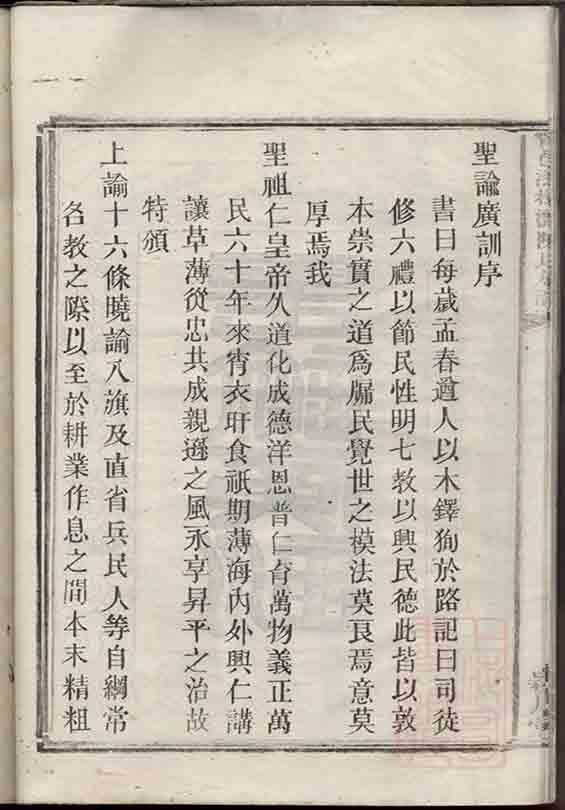 聖諭廣訓序
書曰每歲孟春遒人以木鐸狥於路記曰司徒
修六禮以節民性明七教以興民德此皆以敦
本崇實之道為牖民覺世之模法莫良焉意莫
厚焉我
聖祖仁皇帝久道化成德洋恩普仁育萬物義正萬
民六十年來宵衣旰食祇期薄海內外興仁講
讓革薄從忠共成親遜之風永享昇平之治故
特頒
上諭十六條曉諭八旗及直省兵民人等自綱常
名教之際以至於耕業作息之間本末精粗